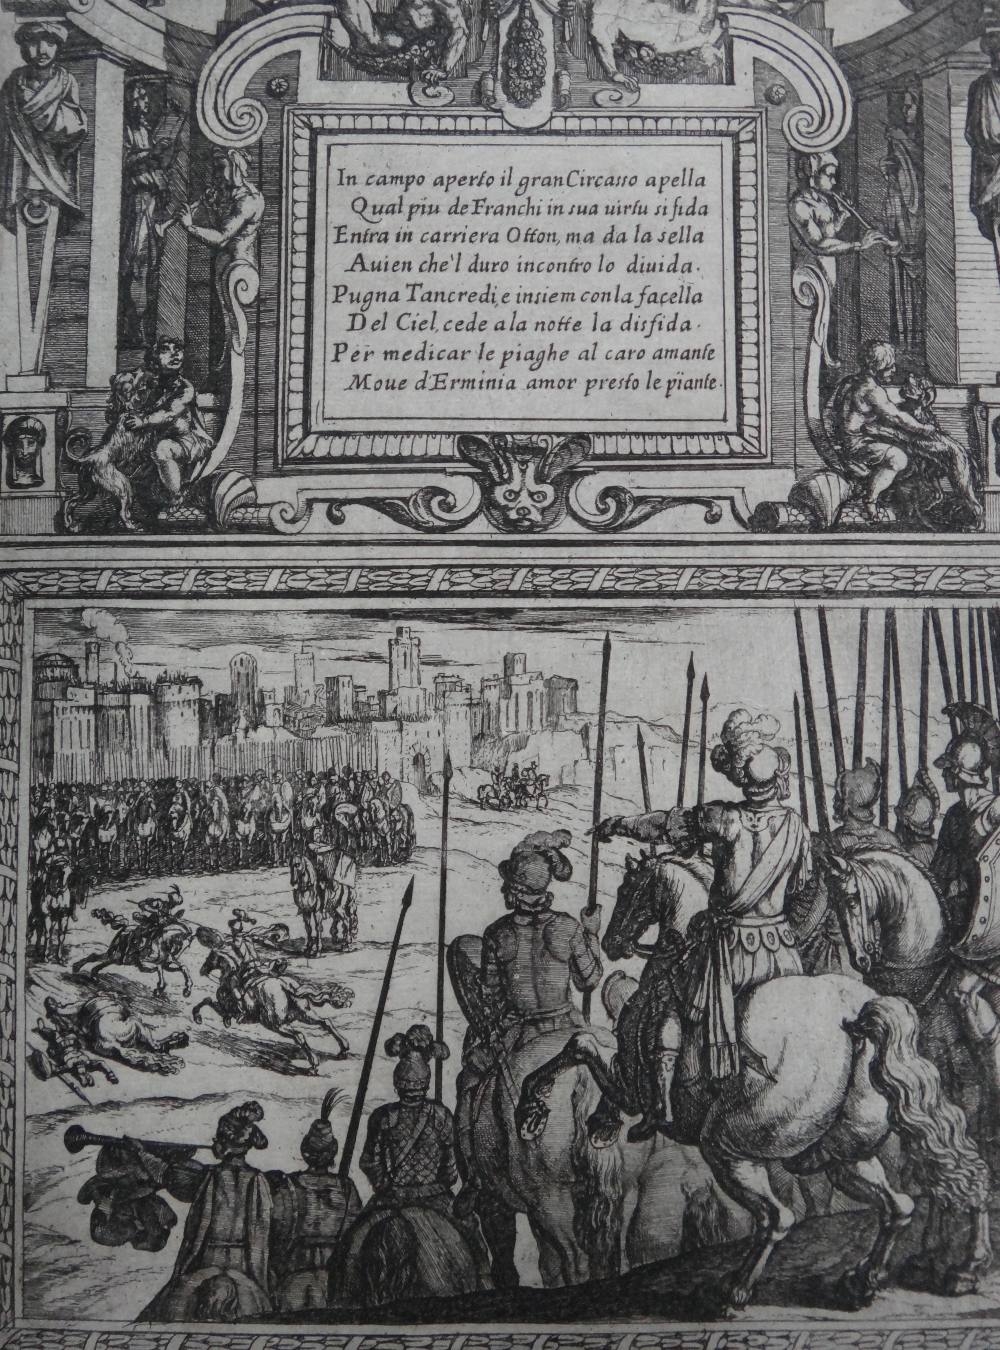 In campo aperto il gran Circasso apella
Qual piu de Franchi in sua uirtu si fida
Entra in carriera Otton, ma da la sella
Auien che'l duro incontro lo diuida.
Pugna Tancredi, e insiem con la facella
Del Ciel, cede a la notte la disfida.
Per medicar le piaghe al caro amante
Moue d'Erminia amor presto le piante.